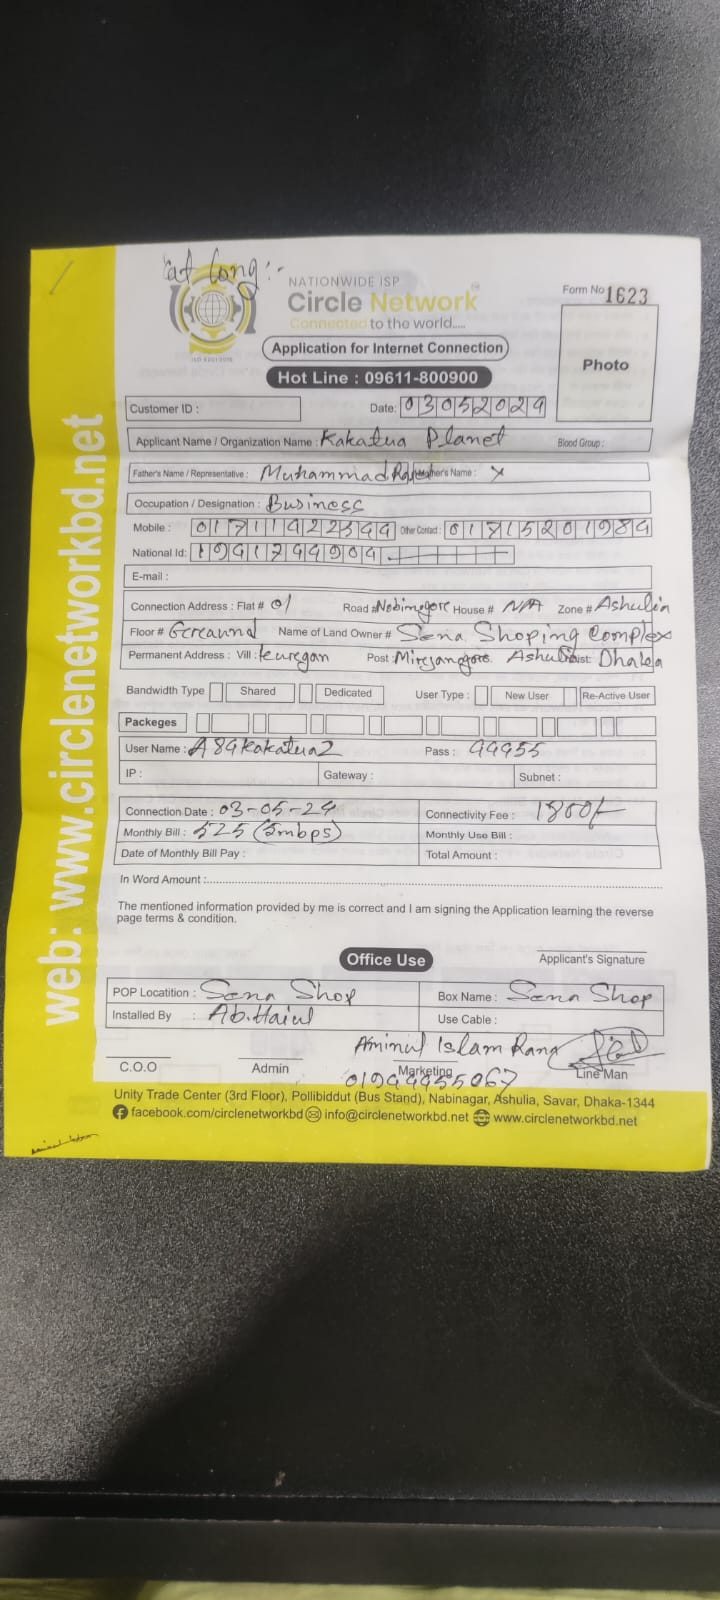 Lat Long:-
NATIONWIDE ISP
Circle Network
Connected to the world.....
ISO 9001:2015
Form No 1623
Application for Internet Connection
Hot Line : 09611-800900
Photo
Customer ID :
Date: 03052024
Applicant Name / Organization Name : Kakatua Planet Blood Group :
Father's Name / Representative : Muhammad Mother's Name : X
Occupation / Designation : Business
Mobile : 01711422344 Other Contact : 01715201984
National Id: 1941744904
E-mail :
Connection Address : Flat # 01 Road # House # N/A Zone # Ashulia
Floor # Name of Land Owner # Sena Shoping Complex
Permanent Address : Vill : Post : Ashulia Dist: Dhaka
Bandwidth Type Shared Dedicated User Type : New User Re-Active User
Packeges
User Name : A84kakatua2 Pass : 44455
IP : Gateway : Subnet :
Connection Date : 03-05-24 Connectivity Fee : 1800/-
Monthly Bill : 525 (5mbps) Monthly Use Bill :
Date of Monthly Bill Pay : Total Amount :
In Word Amount :
The mentioned information provided by me is correct and I am signing the Application learning the reverse
page terms & condition.
Office Use
Applicant's Signature
POP Locatition : Sena Shop Box Name : Sena Shop
Installed By : Use Cable :
Aminul Islam Rana
C.O.O Admin Marketing Line Man
01944455067
Unity Trade Center (3rd Floor), Pollibiddut (Bus Stand), Nabinagar, Ashulia, Savar, Dhaka-1344
facebook.com/circlenetworkbd info@circlenetworkbd.net www.circlenetworkbd.net
web: www.circlenetworkbd.net